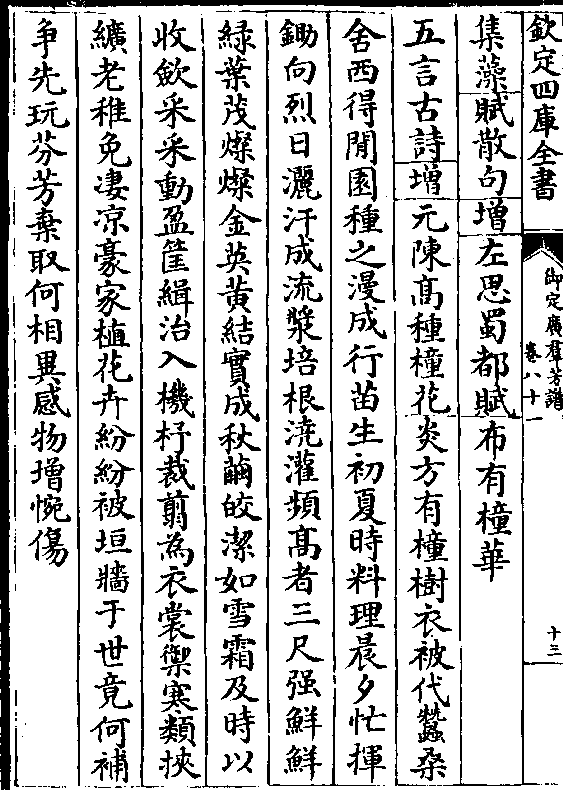 欽定四庫全書
御定廣羣芳譜
卷八十一
十三
集藻賦散句增左思蜀都賦布有橦華
五言古詩增元陳髙種橦花炎方有橦樹衣被代蠶桑
舍西得閒園種之漫成行苗生初夏時料理晨夕忙揮
鋤向烈日灑汗成流漿培根澆灌頻髙者三尺强鮮鮮
緑葉茂燦燦金英黄結實成秋繭皎潔如雪霜及時以
收斂采采動盈筐緝治入機杼裁剪為衣裳禦寒類挾
纊老稚免凄凉豪家植花卉紛紛被垣牆于世竟何補
争先玩芬芳棄取何相異感物增惋傷